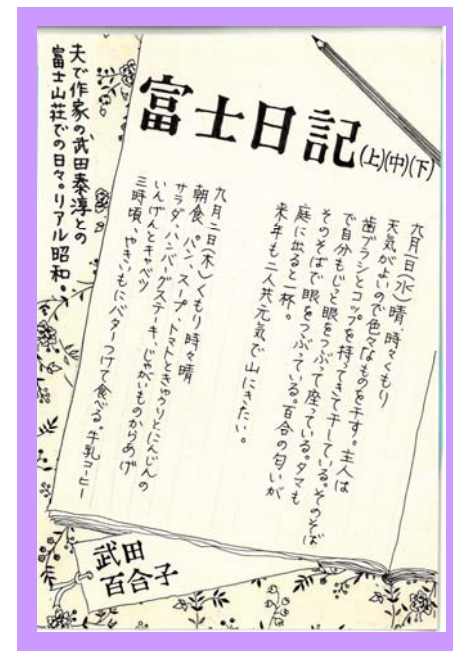 夫で作家の武田泰淳との
富士山荘での日々。リアル昭和。
富士日記(上)(中)(下)
九月一日(水)晴、時々くもり
天気がよいので色々なものを干す。主人は
歯ブラシとコップを持ってきて干している。そのそば
で自分もじっと眼をつぶって座っている。タマも
そのそばで眼をつぶっている。百合の匂いが
庭に出ると一杯。
来年も二人共元気で山にきたい。
九月二日(木)くもり時々晴
朝食 パン、スープ、トマトときゅうりとにんじんの
サラダ、ハンバーグステーキ、じゃがいものからあげ
いんげんとキャベツ
三時頃、やきいもにバターつけて食べる。牛乳コーヒー
武田
百合子